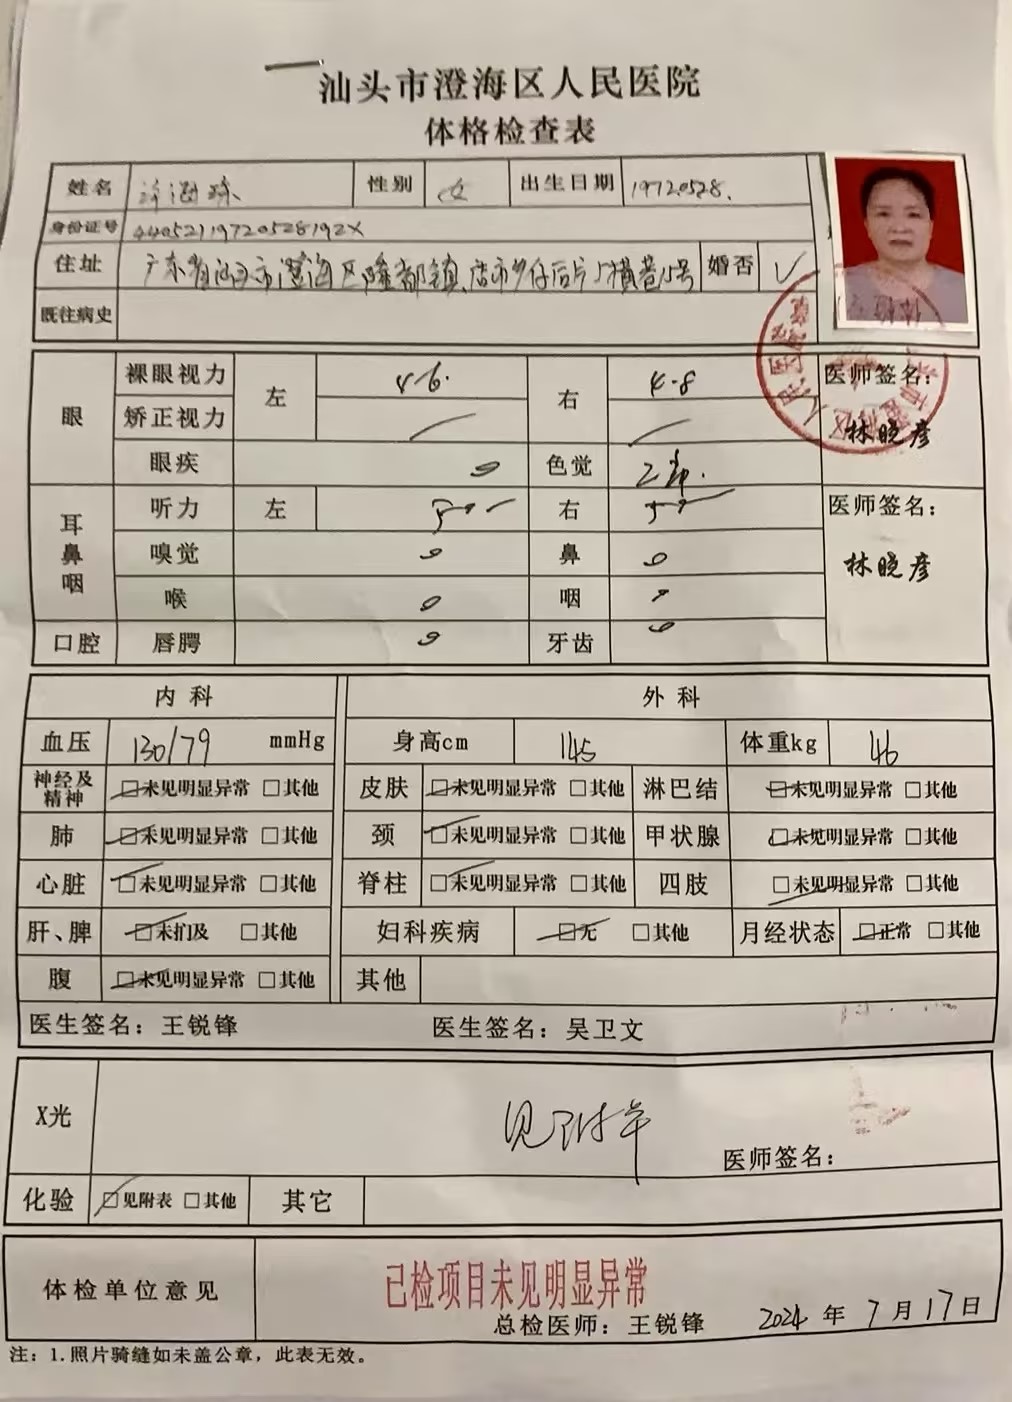 汕头市澄海区人民医院
体格检查表
姓名 性别 女 出生日期 19720528.
身份证号 44052119720528192X
住址 广东省汕头市澄海区隆都镇 店市乡仔后片5横巷15号 婚否 √
既往病史
眼 裸眼视力 左 4.6. 右 4.8
矫正视力
眼疾 色觉
医师签名:
林晓彦
耳鼻咽 听力 左 右
嗅觉 鼻
喉 咽
医师签名:
林晓彦
口腔 唇腭 牙齿
内科 外科
血压 130/79 mmHg 身高cm 145 体重kg 46
神经及精神 ☑未见明显异常 □其他 皮肤 ☑未见明显异常 □其他 淋巴结 ☑未见明显异常 □其他
肺 ☑未见明显异常 □其他 颈 ☑未见明显异常 □其他 甲状腺 ☑未见明显异常 □其他
心脏 ☑未见明显异常 □其他 脊柱 ☑未见明显异常 □其他 四肢 ☑未见明显异常 □其他
肝、脾 ☑未扪及 □其他 妇科疾病 ☑无 □其他 月经状态 ☑正常 □其他
腹 ☑未见明显异常 □其他 其他
医生签名: 王锐锋 医生签名: 吴卫文
X光 见附单 医师签名:
化验 ☑见附表 □其他 其它
体检单位意见 已检项目未见明显异常
总检医师: 王锐锋 2024 年 7 月 17 日
注: 1.照片骑缝如未盖公章，此表无效。